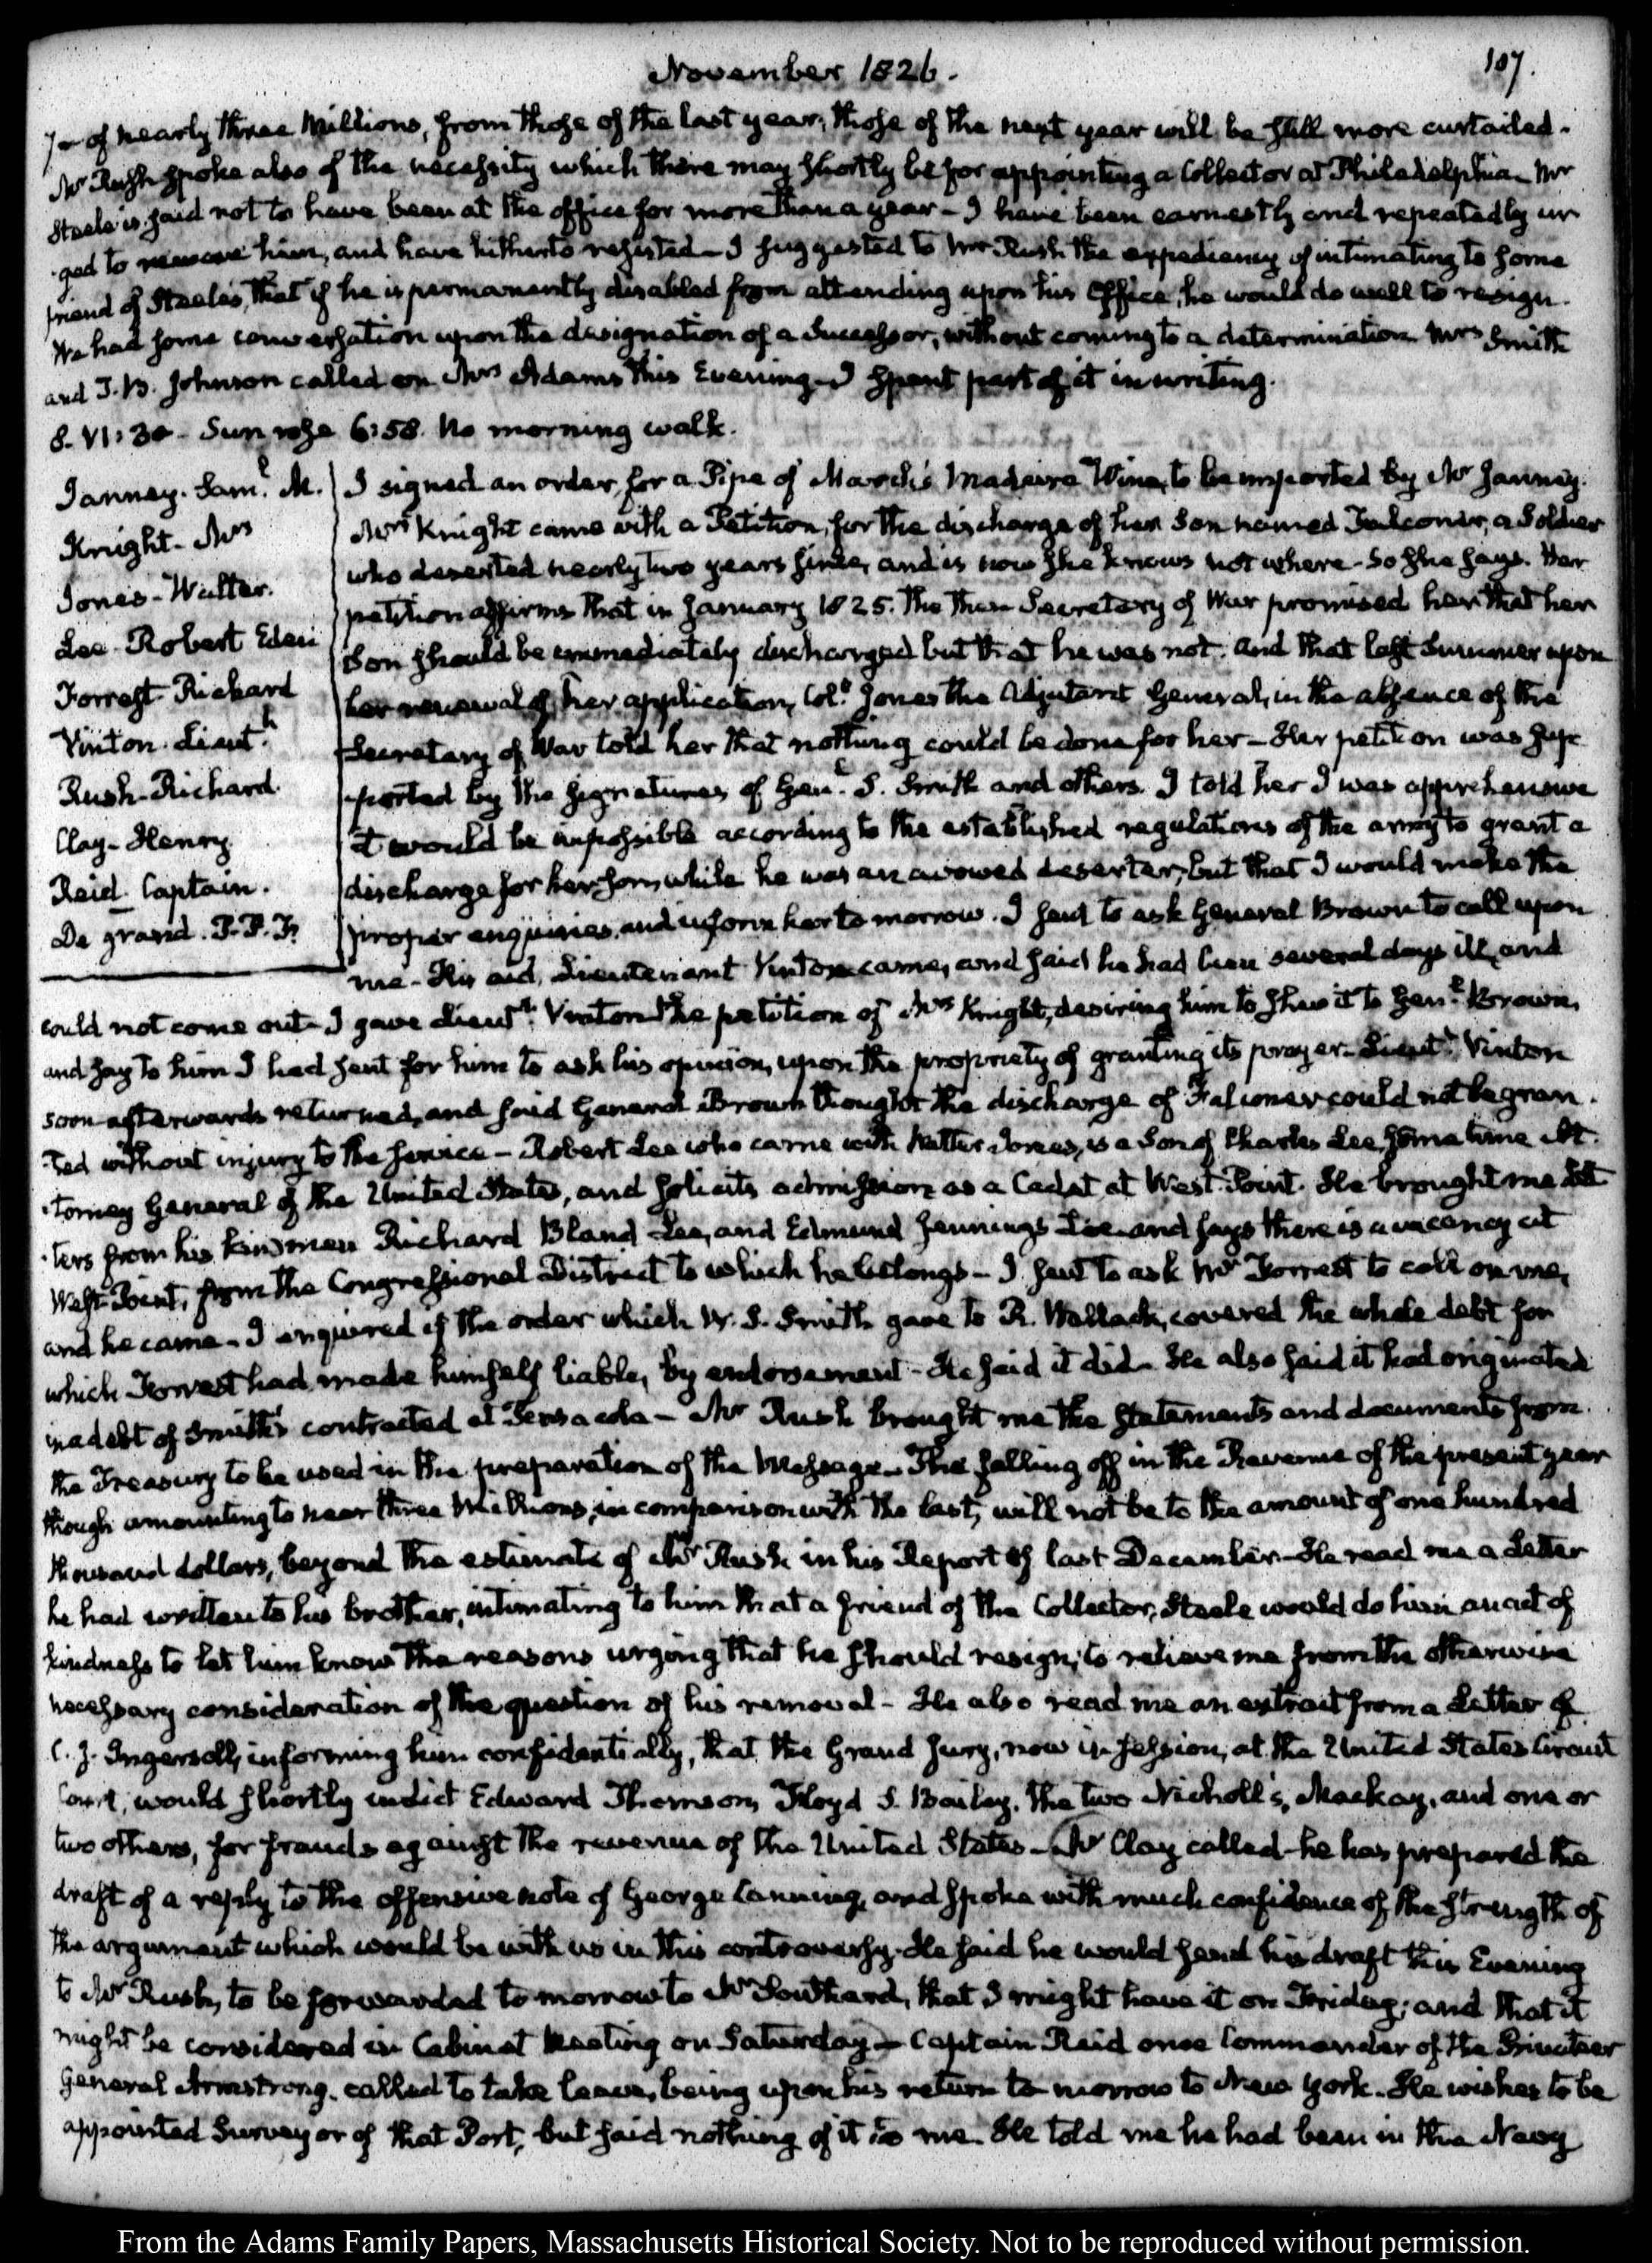 November 1826.
107.
7 — of nearly three Millions, from those of the last year, those of the next year will be still more curtailed.
Mr. Rush spoke also of the necessity which there may shortly be for appointing a Collector at Philadelphia. Mr
Steele is said not to have been at the office for more than a year — I have been earnestly and repeatedly ur
-ged to remove him, and have hitherto resisted — I suggested to Mr Rush the expediency of intimating to some
friend of Steele's, that if he is permanently disabled from attending upon his Office, he would do well to resign.
We had some conversation upon the designation of a Successor, without coming to a determination. Mrs Smith
and J. B. Johnson called on Mrs Adams this Evening — I spent part of it in writing.
8. VI:30 — Sun rose 6:58. No morning walk.
Janney. Saml. M.
Knight — Mrs
Jones — Walter.
Lee. Robert Eden
Forrest. Richard
Vinton. Lieutt.
Rush — Richard.
Clay — Henry
Reid. Captain.
De grand. P. P. F.
I signed an order for a Pipe of March's Madeira Wine, to be imported by Mr Janney.
Mrs Knight came with a Petition, for the discharge of her Son named Falconer, a Soldier
who deserted nearly two years since, and is now she knows not where — So she says. Her
petition affirms that in January 1825. the then Secretary of War promised her that her
Son should be immediately discharged but that he was not. and that last Summer upon
her renewal of her application, Coll. Jones the Adjutant General, in the absence of the
Secretary of War told her that nothing could be done for her — Her petition was sup
-ported by the signatures of Genl. S. Smith and others. I told her I was apprehensive
it would be impossible according to the established regulations of the army to grant a
discharge for her son, while he was an avowed deserter, but that I would make the
proper enquiries, and inform her to morrow. I sent to ask General Brown to call upon
me — His aid, Lieutenant Vinton came, and said he had been several days ill, and
could not come out — I gave Lieutt. Vinton the petition of Mrs Knight, desiring him to shew it to Genl. Brown,
and say to him I had sent for him to ask his opinion, upon the propriety of granting its prayer — Lieutt. Vinton
soon afterwards returned, and said General Brown thought the discharge of Falconer could not be gran
-ted without injury to the service — Robert Lee who came with Walter Jones, is a Son of Charles Lee, sometime At
-torney General of the United States, and solicits admission as a Cadet at West-Point. He brought me Let
-ters from his kinsmen Richard Bland Lee, and Edmund Jennings Lee and says there is a vacancy at
West-Point, from the Congressional District to which he belongs — I sent to ask Mr Forrest to call on me,
and he came — I enquired if the order which W. S. Smith gave to R. Wallack, covered the whole debt for
which Forrest had made himself liable, by endorsement — He said it did — He also said it had originated
in a debt of Smith's contracted at Pensacola — Mr Rush brought me the Statements and documents from
the Treasury to be used in the preparation of the Message. The falling off in the Revenue of the present year
though amounting to near three Millions, in comparison with the last, will not be to the amount of one hundred
thousand dollars, beyond the estimate of Mr Rush in his Report of last December — He read me a Letter
he had written to his brother, intimating to him that a friend of the Collector, Steele would do him an act of
kindness to let him know the reasons urging that he should resign, to relieve me from the otherwise
necessary consideration of the question of his removal — He also read me an extract from a Letter of
C. J. Ingersoll, informing him confidentially, that the Grand Jury, now in session, at the United States Circuit
Court, would shortly indict Edward Thomson, Floyd S. Bailey, the two Nicholl's, Mackay, and one or
two others, for frauds against the revenue of the United States — Mr Clay called — he has prepared the
draft of a reply to the offensive note of George Canning, and spoke with much confidence of the strength of
the argument which would be with us in this controversy. He said he would send his draft this Evening
to Mr Rush, to be forwarded to morrow to Mr Southard, that I might have it on Friday; and that it
might be considered in Cabinet Meeting on Saturday — Captain Reid once Commander of the Privateer
General Armstrong, called to take leave, being upon his return to morrow to New York. He wishes to be
appointed Surveyor of that Port, but said nothing of it to me. He told me he had been in the Navy
From the Adams Family Papers, Massachusetts Historical Society. Not to be reproduced without permission.